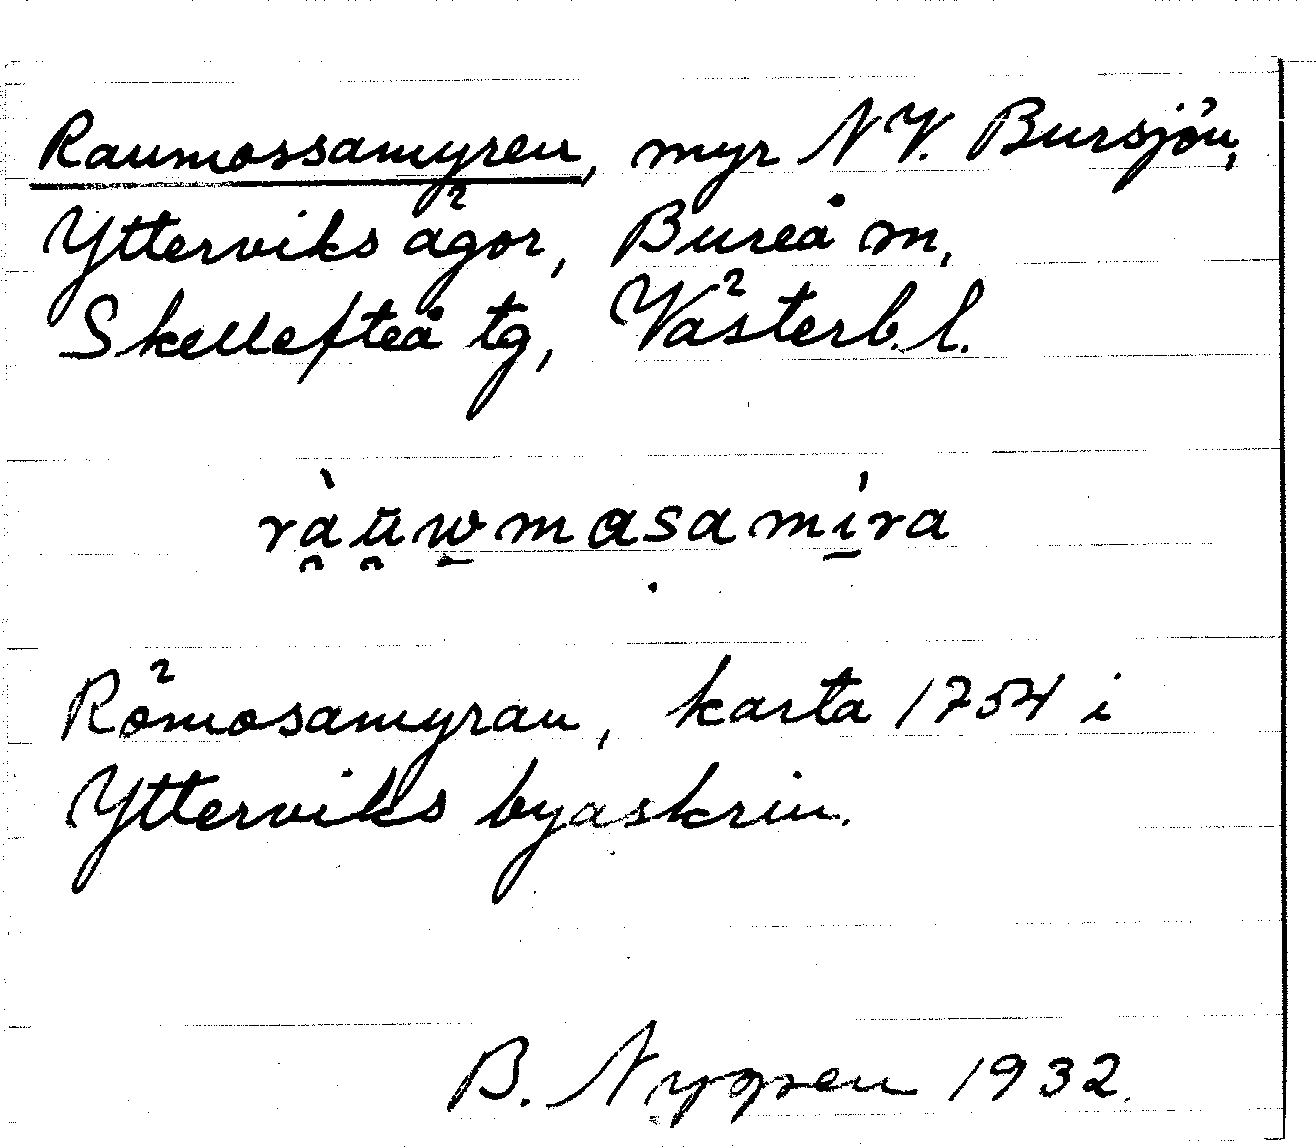 Raumossamyren, myr N V. Bursjön,
Ytterviks ägor, Bureå m,
Skellefteå tg, Västerb. l.
ràu̯wmasamíra
Römosamyran, karta 1754 i
Ytterviks byaskrin.
B. Nygren 1932.